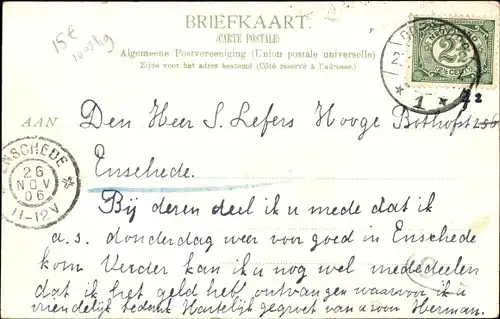 15€
BRIEFKAART.
(CARTE POSTALE)
Algemeene Postvereeniging (Union postale universelle)
Zijde voor het adres bestemd (Côté réservé à l'adresse.)
2½
1
AAN Den Heer S. Lefers Hooge Bothofst
Enschede.
ENSCHEDE
26
NOV
06
11-12V
Bij deren deel ik u mede dat ik
a.s. donderdag weer voor goed in Enschede
kom Verder kan ik u nog wel mededeelen
dat ik het geld heb ontvangen waarvoor ik u
vriendelijk bedank Hartelijk gegroet van u zoon Herman.